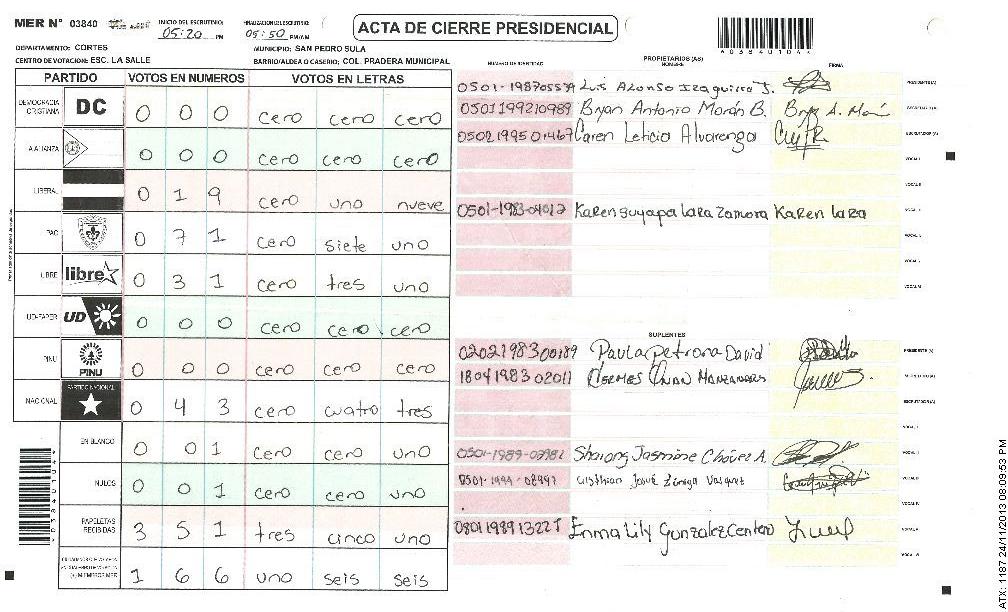 MER N° 03840
INICIO DEL ESCRUTINIO:
05:20 PM
FINALIZACION DEL ESCRUTINIO:
05:50 PM/AM
ACTA DE CIERRE PRESIDENCIAL
0384010４
DEPARTAMENTO: CORTES
MUNICIPIO: SAN PEDRO SULA
CENTRO DE VOTACION: ESC. LA SALLE
BARRIO/ALDEA O CASERIO: COL. PRADERA MUNICIPAL
PARTIDO VOTOS EN NUMEROS VOTOS EN LETRAS
DEMOCRACIA CRISTIANA DC 0 0 0 cero cero cero
ALIANZA 0 0 0 cero cero cero
LIBERAL 0 1 9 cero uno nueve
PAC 0 7 1 cero siete uno
LIBRE libre 0 3 1 cero tres uno
UD-FAPER UD 0 0 0 cero cero cero
PINU PINU 0 0 0 cero cero cero
NACIONAL PARTIDO NACIONAL 0 4 3 cero cuatro tres
EN BLANCO 0 0 1 cero cero uno
NULOS 0 0 1 cero cero uno
PAPELETAS RECIBIDAS 3 5 1 tres cinco uno
(+) MIEMBROS MER 1 6 6 uno seis seis
NUMERO DE IDENTIDAD
PROPIETARIOS (AS)
NOMBRE
FIRMA
Luis Alonso Izaguirre J. PRESIDENTE (A)
0501199210989 Bryan Antonio Morán B. SECRETARIO (A)
0502199501467 Caren Leticia Alvarenga ESCRUTADOR (A)
VOCAL I
VOCAL II
0501-1983-04012 Karen Suyapa Lara Zamora Karen Lara
SUPLENTES
0202198300189 Paula Petrona David PRESIDENTE (A)
1804198302011
ESCRUTADOR (A)
VOCAL I
0501-1989-03982 Sharong Jasmine Chávez A.
0501-1994-08997 Cristhian Josué Zúniga Vasquez
Emma Lily Gonzalez Centeno
ATX: 1187 24/11/2013 08:09:53 PM